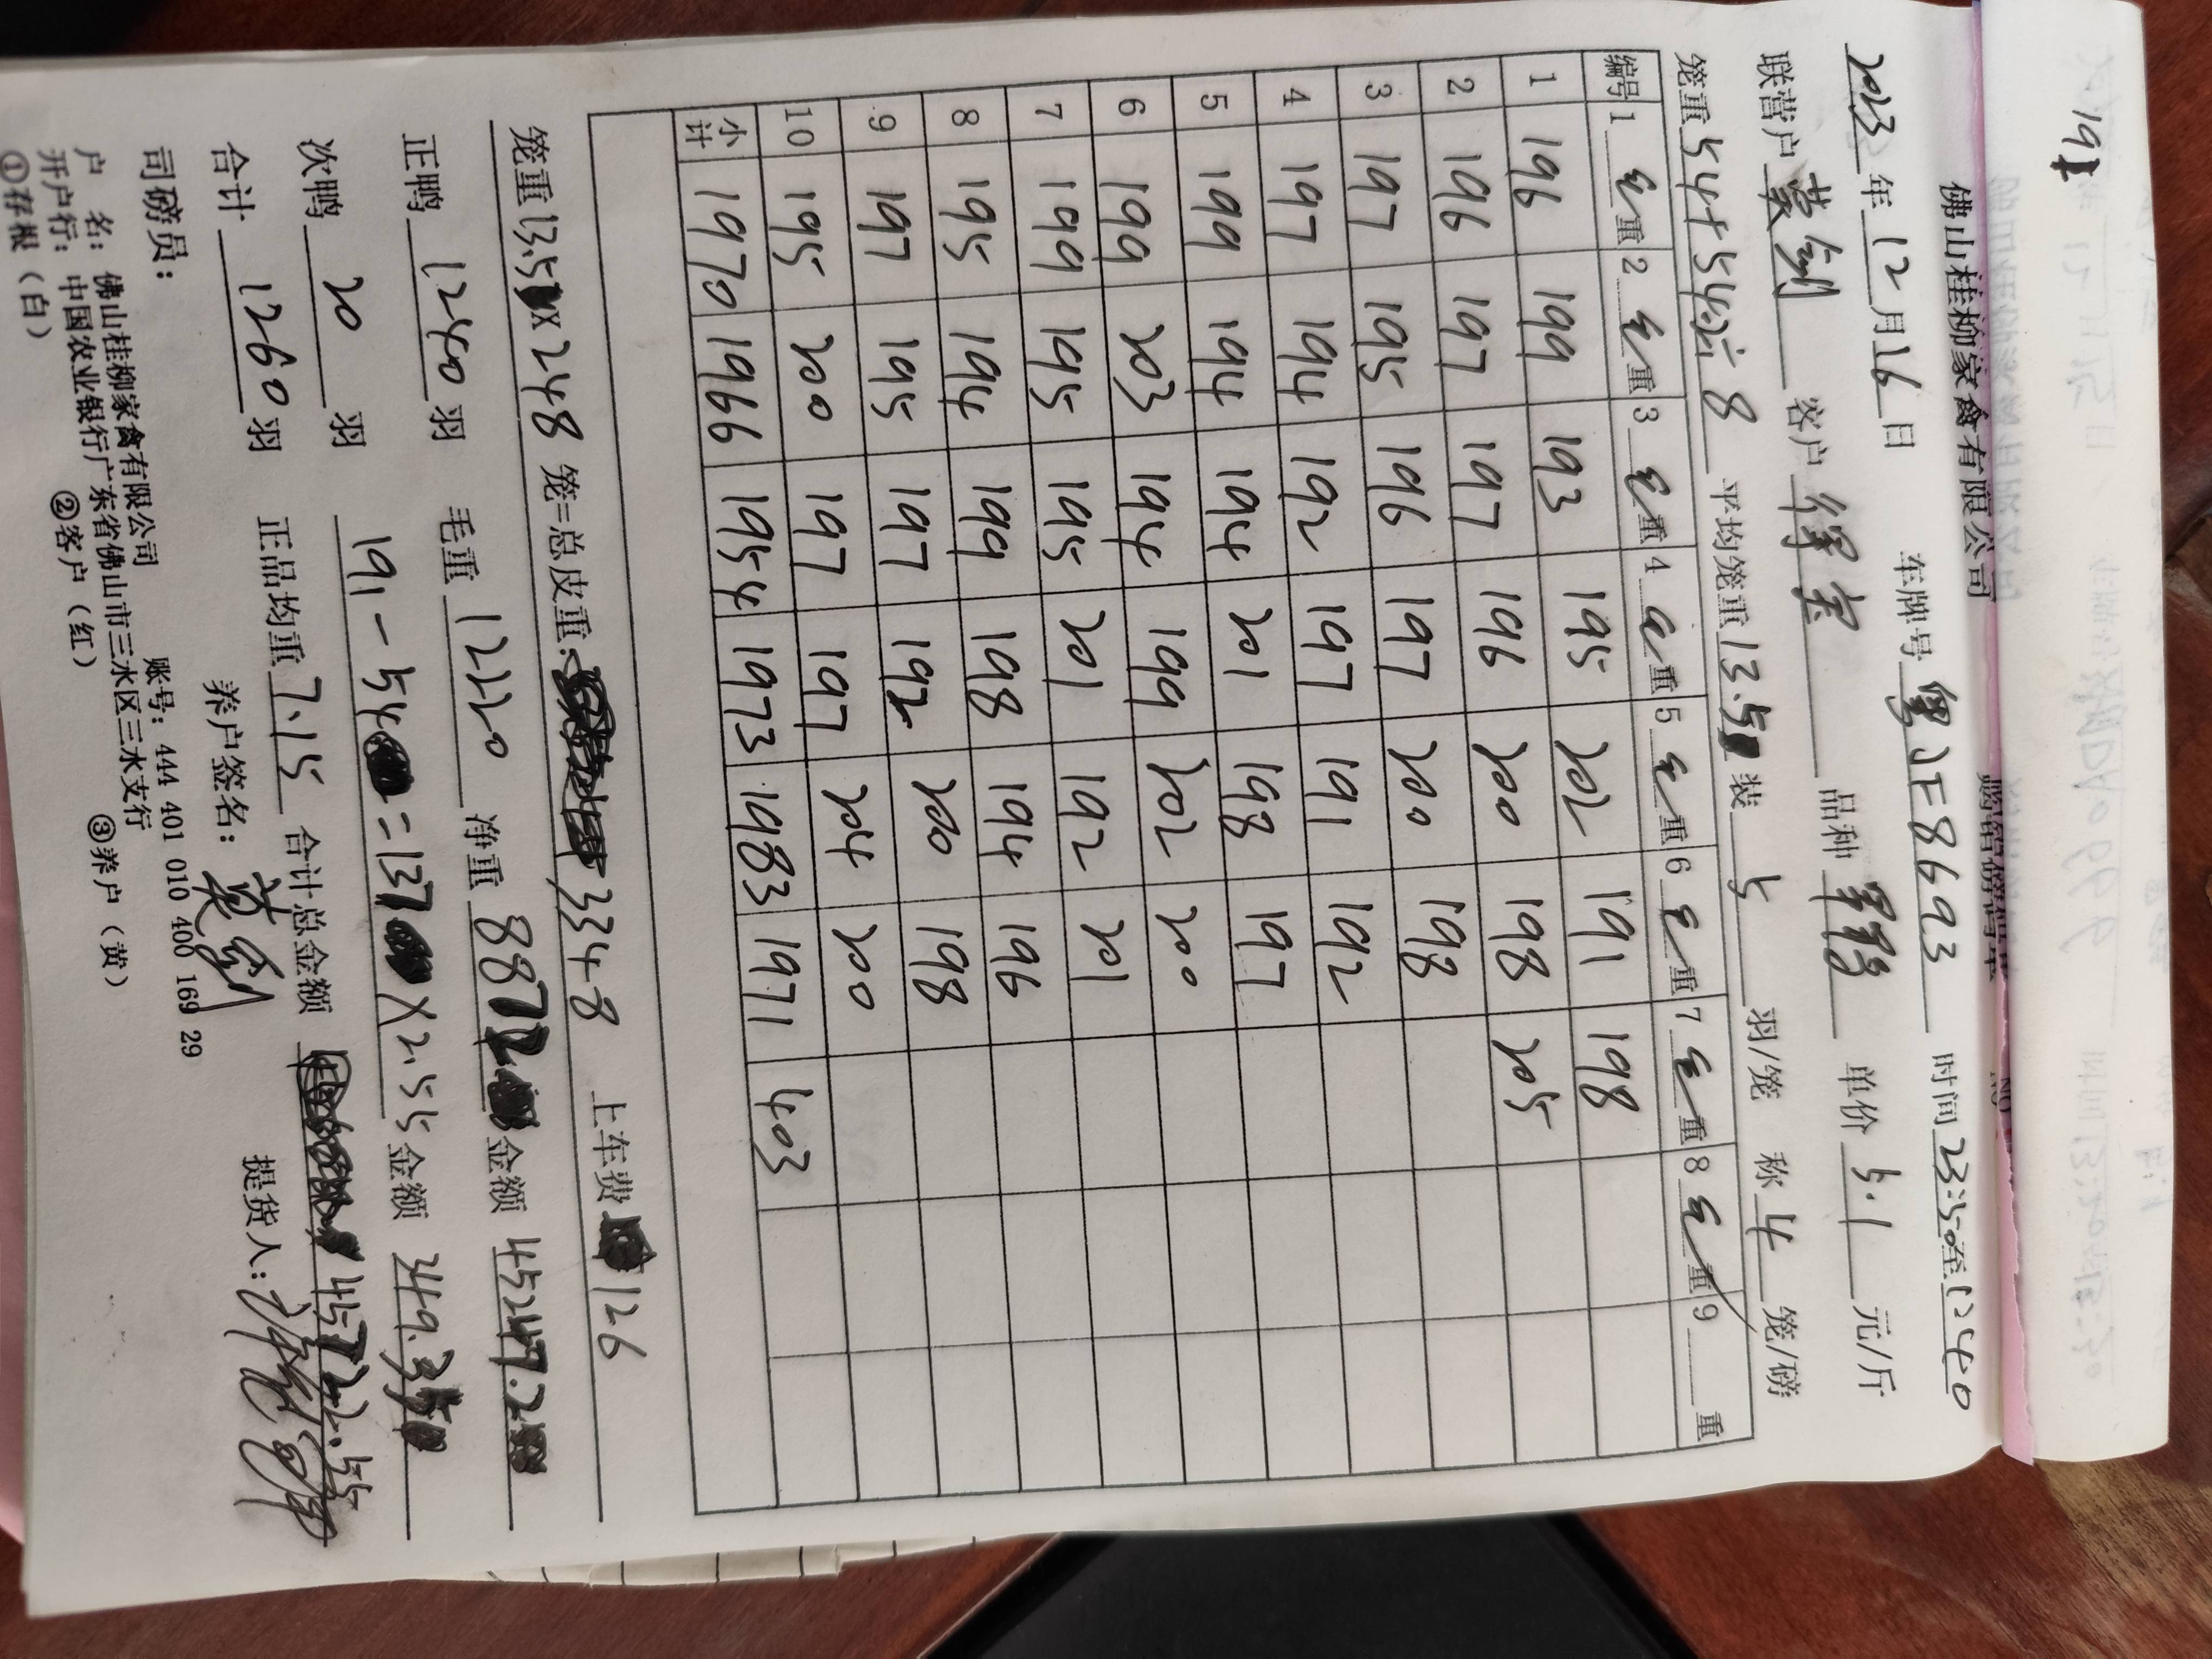 191
佛山桂柳家禽有限公司
2023年12月16日 车牌号粤JE8693 时间23:50至12:40
联营户 客户 品种 单价5.1元/斤
笼重54+54÷8 平均笼重13.5装5羽/笼 称4笼/磅
编号 1 重 2 重 3 重 4 重 5 重 6 重 7 重 8 重 9 重
1 196 199 193 195 202 191 198
2 196 197 197 196 200 198 205
3 197 195 196 197 200 198
4 197 194 192 197 191 192
5 199 194 194 201 198 197
6 199 203 194 199 202 200
7 199 195 195 201 192 201
8 195 194 199 198 194 196
9 197 195 197 192 200 198
10 195 200 197 197 204 200
小计 1970 1966 1954 1973 1983 1971 403
笼重13.5x248笼=总皮重:3348 上车费126
正鸭1240羽 毛重12220 净重8872 金额45247.2
次鸭20羽 191-54=137X2.55金额349.3
合计1260羽 正品均重7.15 合计总金额45722.55
司磅员: 养户签名: 提货人:
户 名: 佛山桂柳家禽有限公司 账号: 444 401 010 400 169 29
开户行: 中国农业银行广东省佛山市三水区三水支行
①存根(白) ②客户(红) ③养户(黄)